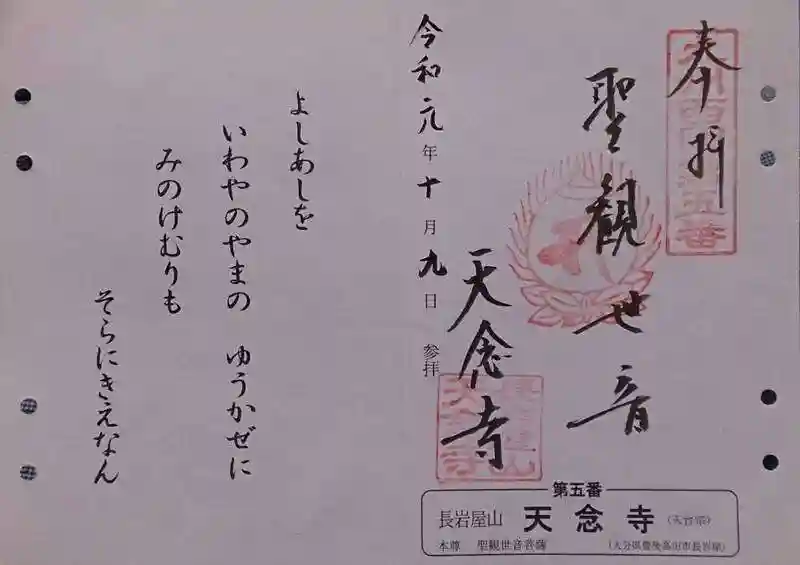 奉拝
聖観世音
天念寺
令和元年十月九日 参拝
よしあしを
いわやのやまの ゆうかぜに
みのけむりも
そらにきえなん
第五番
長岩屋山 天念寺 (天台宗)
本尊 聖観世音菩薩 (大分県豊後高田市長岩屋)